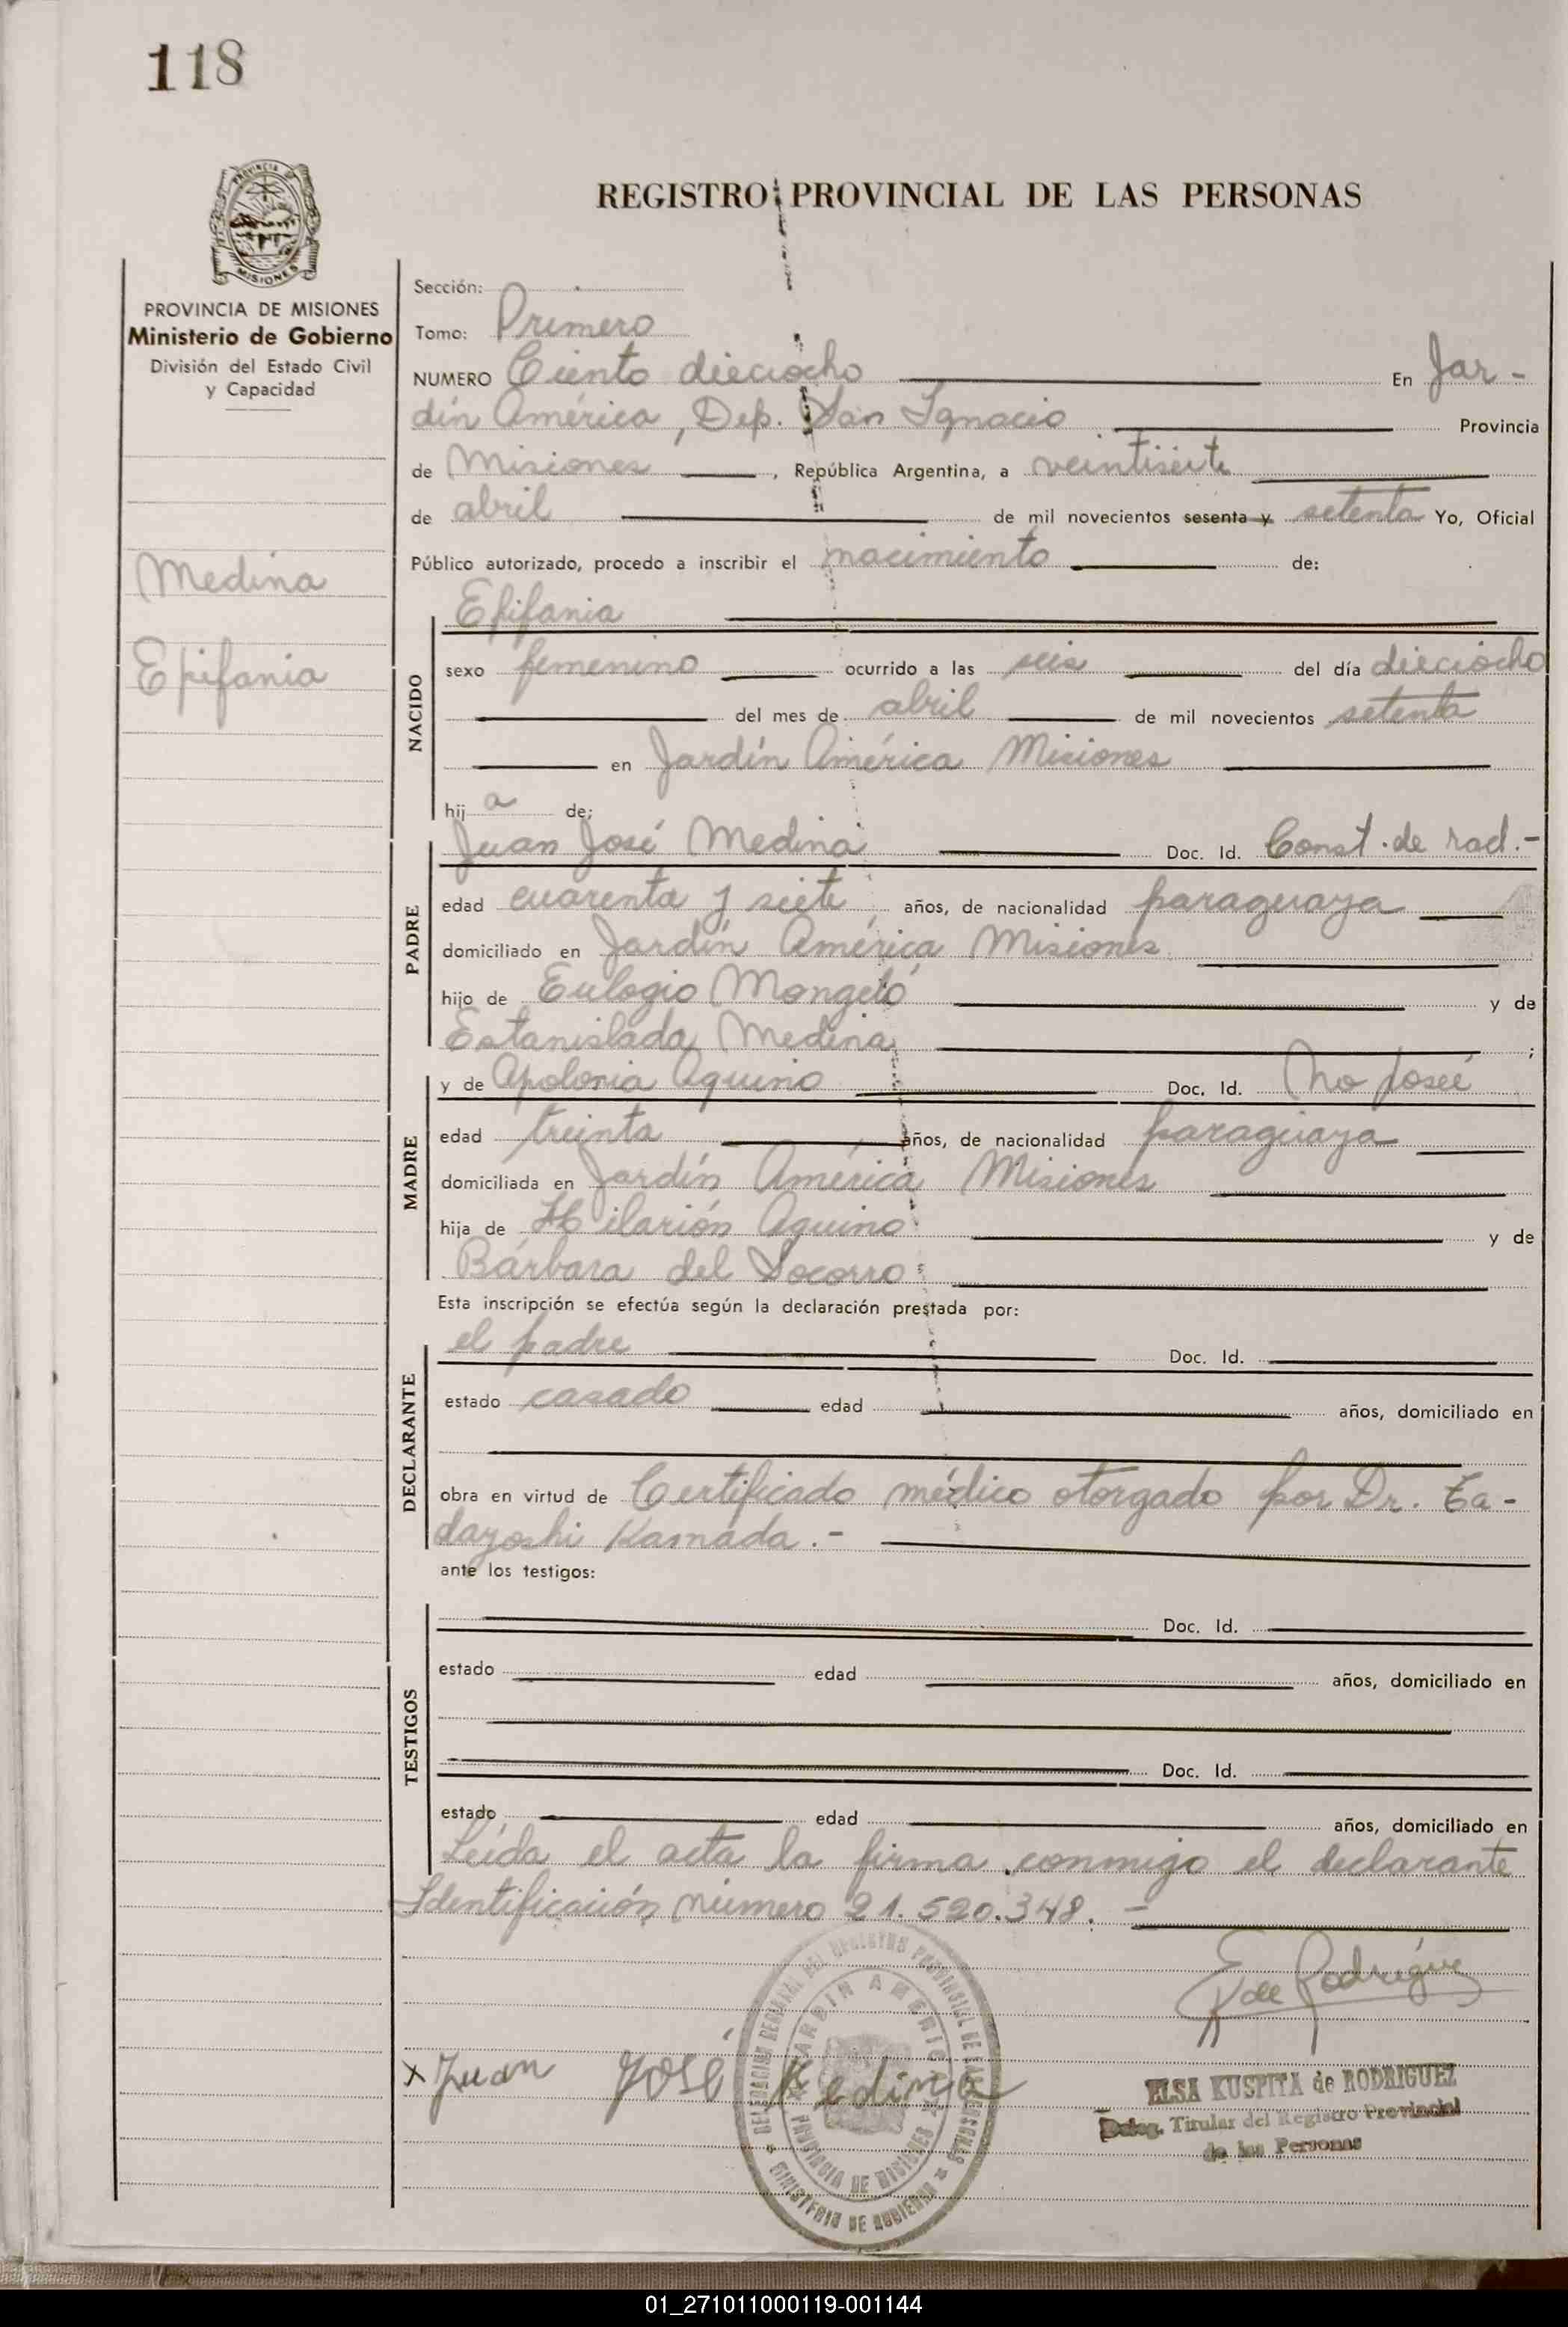 118
PROVINCIA DE
MISIONES
REGISTRO PROVINCIAL DE LAS PERSONAS
PROVINCIA DE MISIONES
Ministerio de Gobierno
División del Estado Civil
y Capacidad
Medina
Epifania
Sección:
Tomo: Primero
NUMERO Ciento dieciocho En Jar-
dín América, Dep. San Ignacio Provincia
de Misiones, República Argentina, a veintisiete
de abril de mil novecientos sesenta y setenta Yo, Oficial
Público autorizado, procedo a inscribir el nacimiento de:
NACIDO
Epifania
sexo femenino ocurrido a las seis del día dieciocho
del mes de abril de mil novecientos setenta
en Jardín América Misiones
hij a de;
PADRE
Juan José Medina Doc. Id. Const. de rad.-
edad cuarenta y siete años, de nacionalidad paraguaya
domiciliado en Jardín América Misiones
hijo de Eulogio Mongeló y de
Estanislada Medina ;
MADRE
y de Apolonia Aquino Doc. Id. No poseé
edad treinta años, de nacionalidad paraguaya
domiciliada en Jardín América Misiones
hija de Hilarión Aquino y de
Bárbara del Socorro
Esta inscripción se efectúa según la declaración prestada por:
DECLARANTE
el padre Doc. Id.
estado casado edad años, domiciliado en
obra en virtud de Certificado médico otorgado por Dr. Ta-
dayoshi Kamada.-
ante los testigos:
TESTIGOS
Doc. Id.
estado edad años, domiciliado en
Doc. Id.
estado edad años, domiciliado en
Leída el acta la firma conmigo el declarante
Identificación número 21.520.348.-
E de Rodríguez
x Juan José Medina
DELEGACION REGIONAL DEL REGISTRO PROVINCIAL DE LAS PERSONAS
MINISTERIO DE GOBIERNO
JARDIN AMERICA
PROVINCIA DE MISIONES
ELSA KUSPITA de RODRIGUEZ
Deleg. Titular del Registro Provincial
de las Personas
01_271011000119-001144